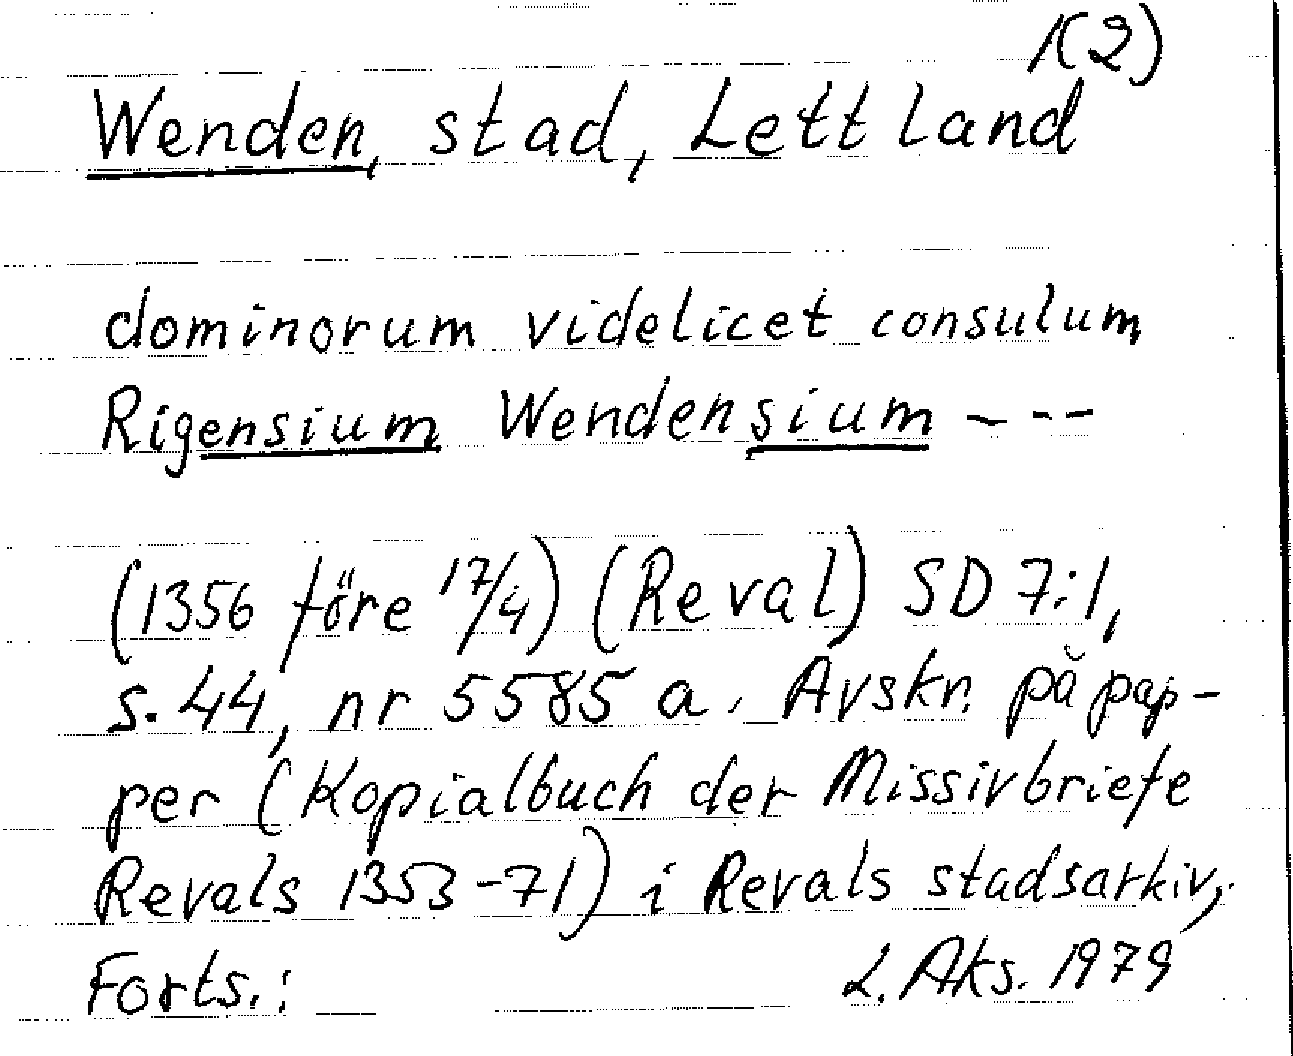 1(2)
Wenden, stad, Lettland
dominorum videlicet consulum
Rigensium Wendensium ----
(1356 före 17/4) (Reval) SD 7:1,
s. 44, nr 5585 a. Avskr. på pap-
per (Kopialbuch der Missivbriefe
Revals 1353-71) i Revals stadsarkiv,
Forts.: L. Aks. 1979